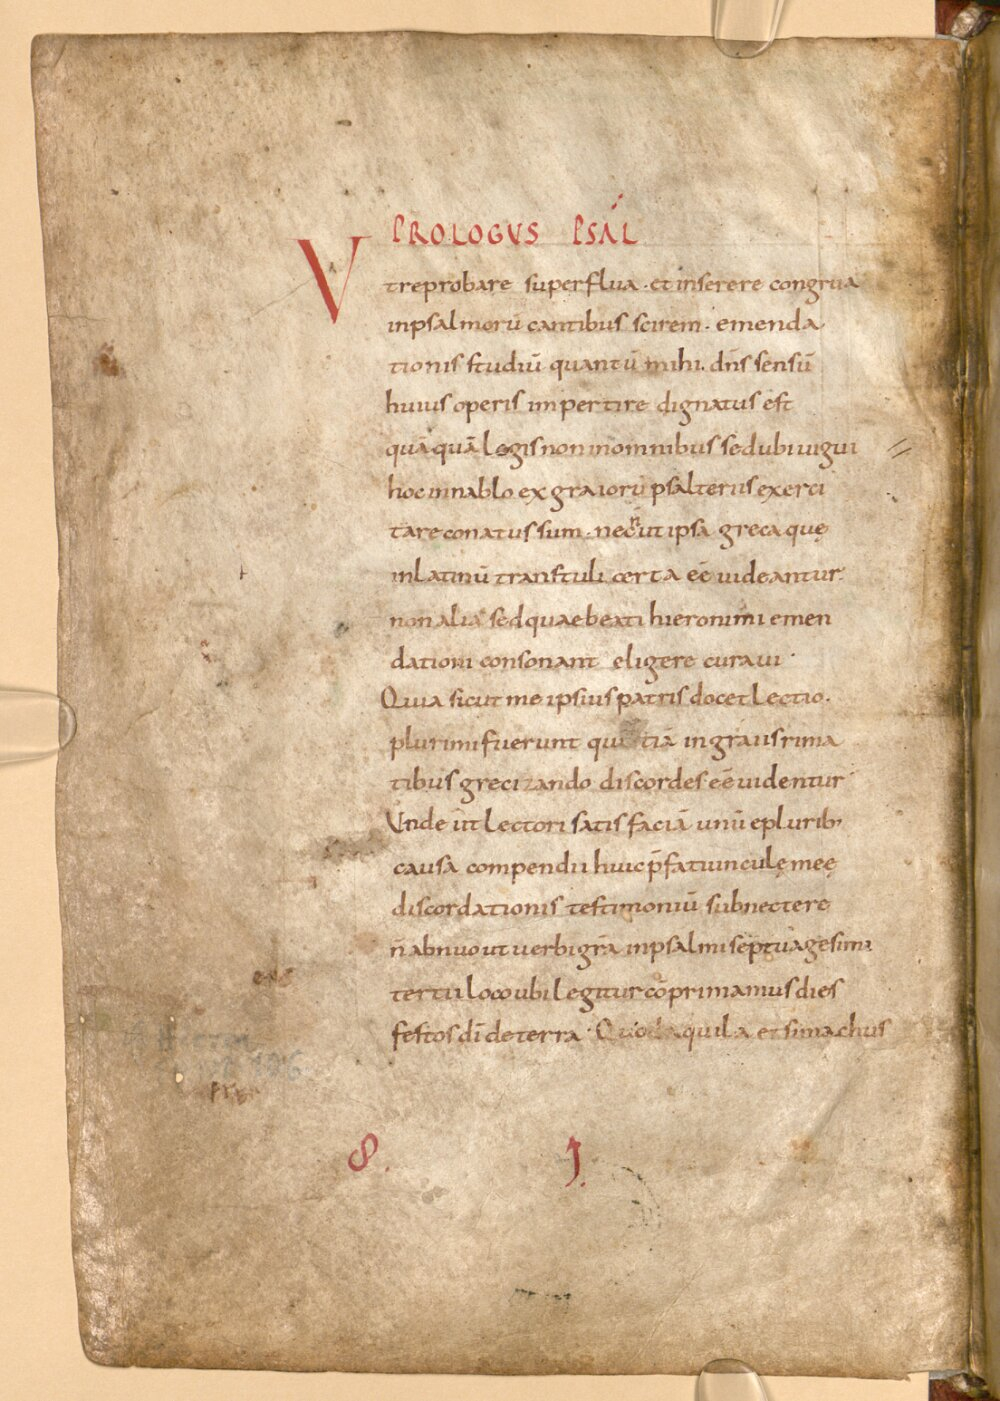 PROLOGVS PSAL̄
Vt reprobare superflua · et inserere congrua
in psalmorū cantibus scirem · emenda
tionis studiū quantū mihi · dn̄s sensū
huius operis impertire dignatus est
quāquā legis non in omnibus sed ubi uigui
hoc in nablo ex graiorū psalteriis exerci
tare conatus sum · nec ut ipsa greca quę
in latinū transtuli certa eē uideantur·
non alia sed quae beati hieronimi emen
dationi consonant eligere curaui ·
Quia sicut me ipsius patris docet Lectio ·
plurimi fuerunt qui etiā in grauis rima
tibus grecizando discordes eē uidentur ·
Vnde ut Lectori satis faciā unū e plurib;
causa compendii huic p̄fatiunculę meę
discordationis testimoniū subnectere
n̄ abnuo ut uerbi grā in psalmi septuagesimi
tertii loco ubi legitur cōprimamus dies
festos dī de terra · Quod aquila et simachus
8. J.